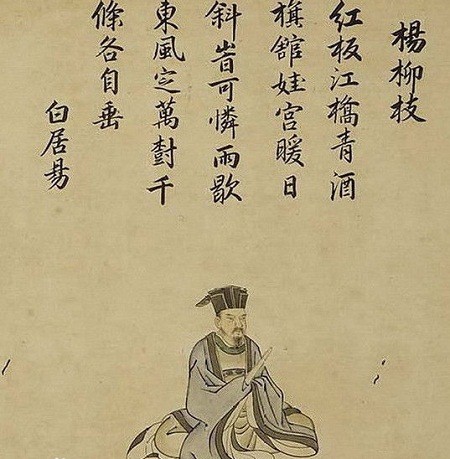 楊柳枝
紅板江橋青酒
旗舘娃宮暖日
斜旹可憐雨歇
東風定萬對千
條各自垂
白居易